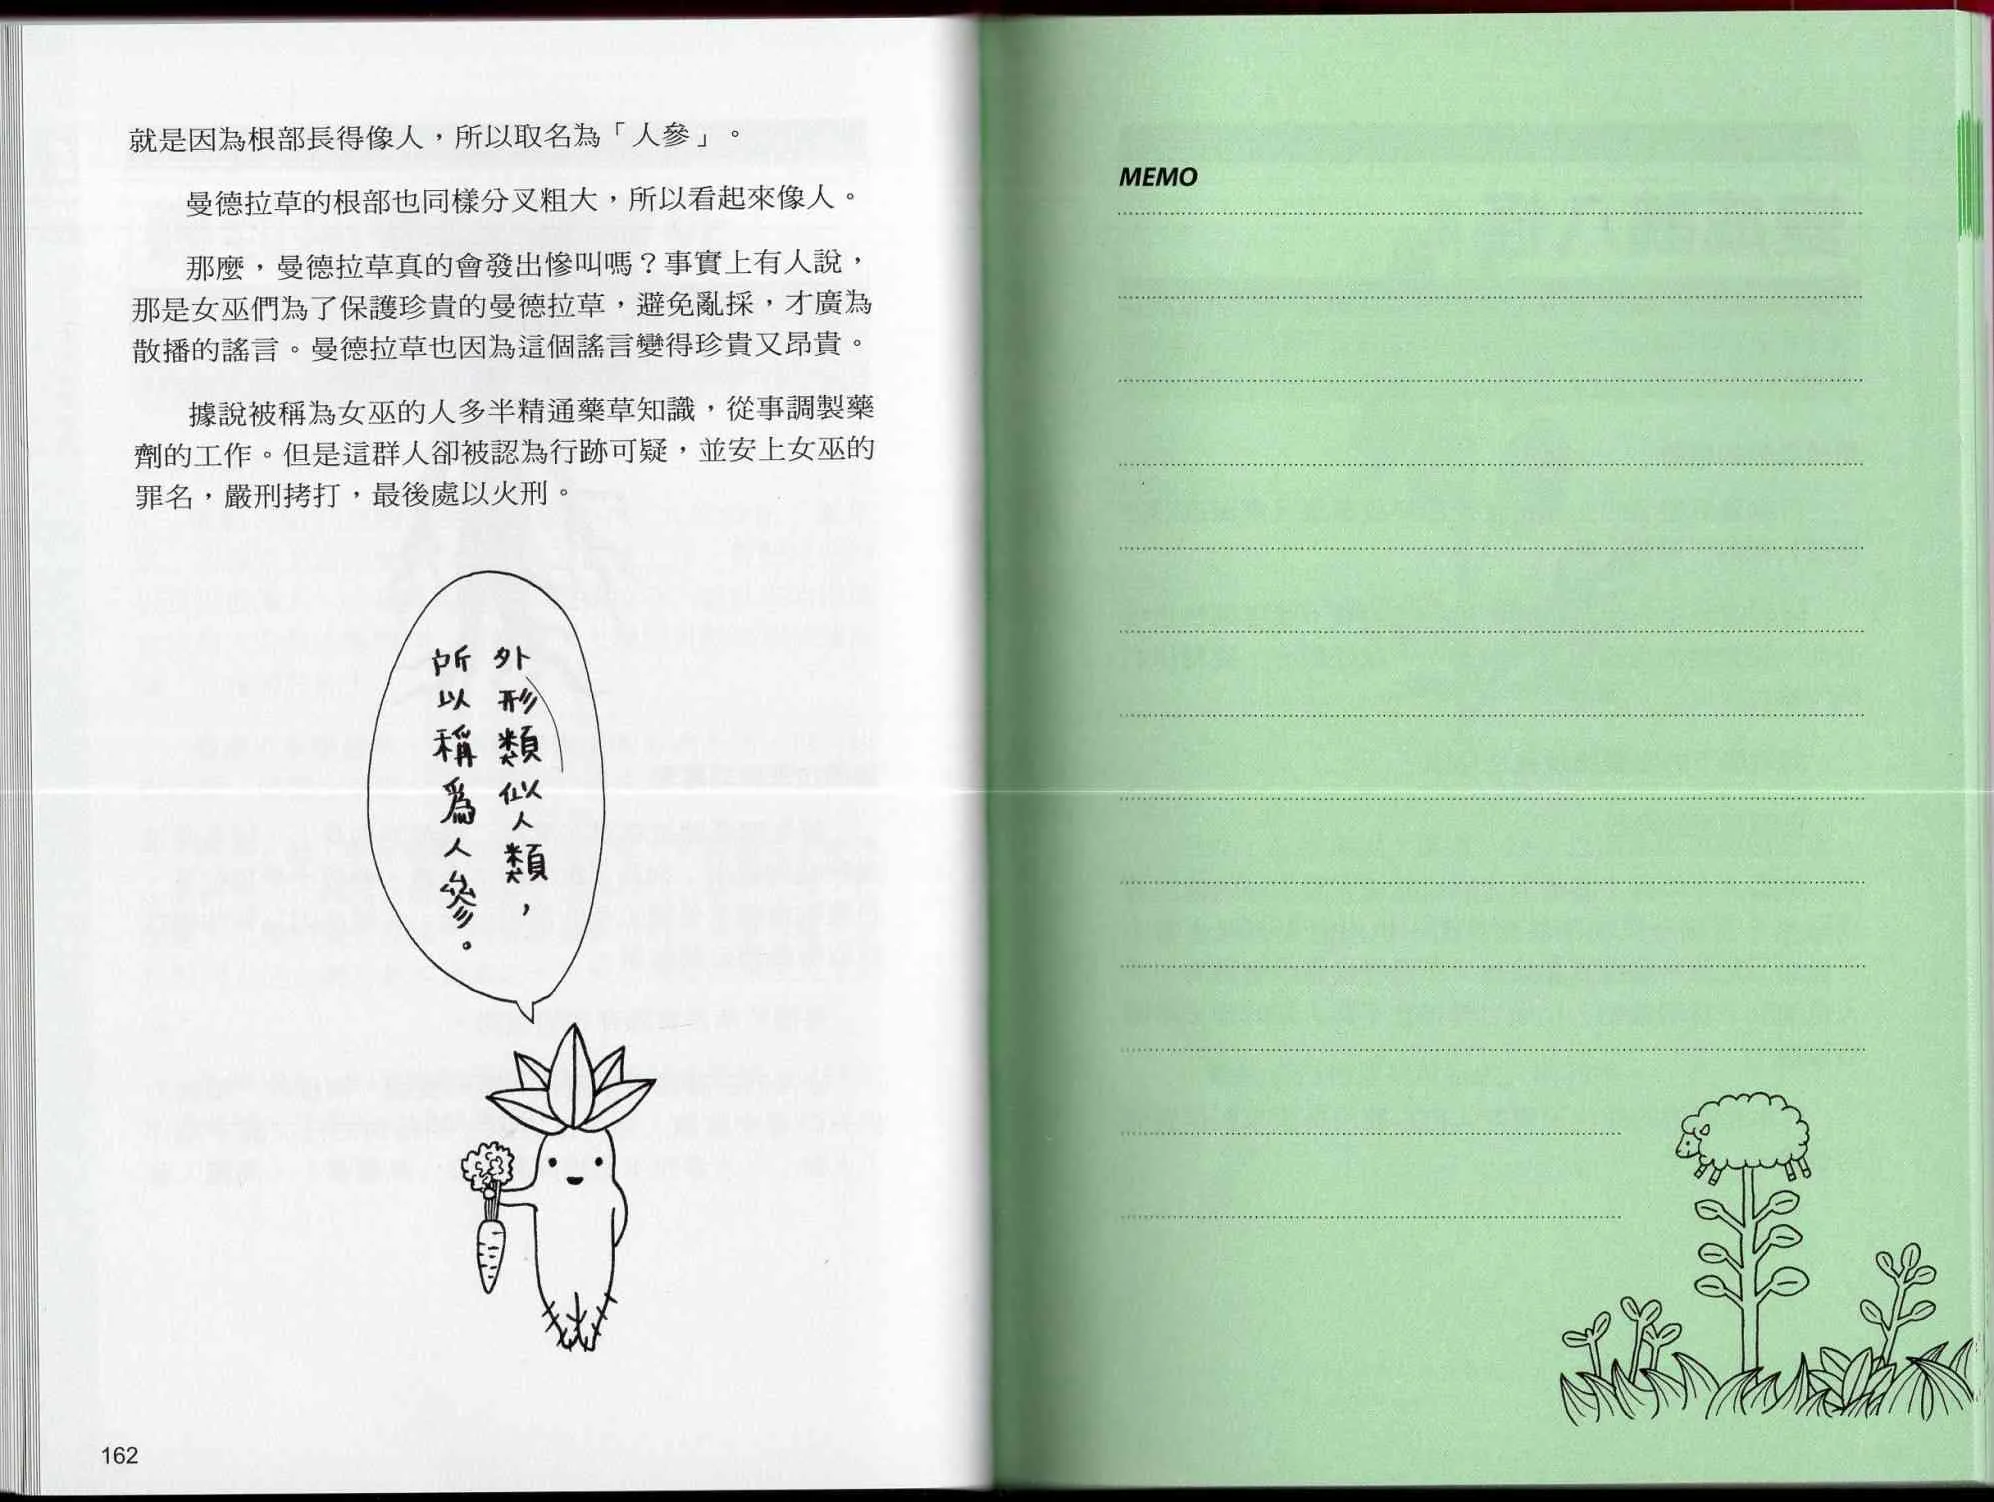 就是因為根部長得像人，所以取名為「人參」。
曼德拉草的根部也同樣分叉粗大，所以看起來像人。
那麼，曼德拉草真的會發出慘叫嗎？事實上有人說，
那是女巫們為了保護珍貴的曼德拉草，避免亂採，才廣為
散播的謠言。曼德拉草也因為這個謠言變得珍貴又昂貴。
據說被稱為女巫的人多半精通藥草知識，從事調製藥
劑的工作。但是這群人卻被認為行跡可疑，並安上女巫的
罪名，嚴刑拷打，最後處以火刑。
外形類似人類，
所以稱為人參。
162
MEMO